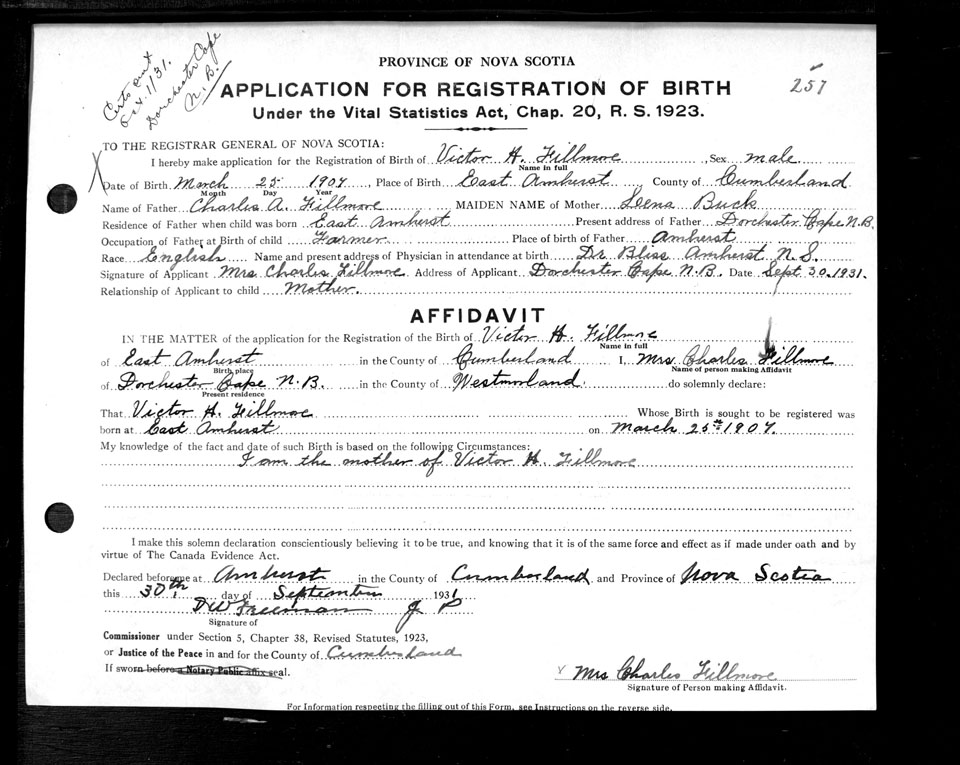 Certs sent
Oct. 1/31.
Dorchester Cape
N.B.
257
PROVINCE OF NOVA SCOTIA
APPLICATION FOR REGISTRATION OF BIRTH
Under the Vital Statistics Act, Chap. 20, R. S. 1923.
TO THE REGISTRAR GENERAL OF NOVA SCOTIA:
I hereby make application for the Registration of Birth of Victor H. Fillmore, Sex male
Name in full
Date of Birth March 25 1907, Place of Birth East Amherst County of Cumberland
Month Day Year
Name of Father Charles A. Fillmore MAIDEN NAME of Mother Leena Buck
Residence of Father when child was born East Amherst Present address of Father Dorchester Cape N.B.
Occupation of Father at Birth of child Farmer Place of birth of Father Amherst
Race English Name and present address of Physician in attendance at birth Dr Bliss Amherst N.S.
Signature of Applicant Mrs Charles Fillmore Address of Applicant Dorchester Cape N.B. Date Sept 30.1931.
Relationship of Applicant to child Mother.
AFFIDAVIT
IN THE MATTER of the application for the Registration of the Birth of Victor H. Fillmore
Name in full
of East Amherst in the County of Cumberland I, Mrs Charles Fillmore
Birth place Name of person making Affidavit
of Dorchester Cape N.B. in the County of Westmorland do solemnly declare:
Present residence
That Victor H. Fillmore Whose Birth is sought to be registered was
born at East Amherst on March 25th 1907.
My knowledge of the fact and date of such Birth is based on the following Circumstances:
I am the mother of Victor H Fillmore
I make this solemn declaration conscientiously believing it to be true, and knowing that it is of the same force and effect as if made under oath and by
virtue of The Canada Evidence Act.
Declared before me at Amherst in the County of Cumberland and Province of Nova Scotia
this 30th day of September 1931
DW Freeman J P
Signature of
Commissioner under Section 5, Chapter 38, Revised Statutes, 1923,
or Justice of the Peace in and for the County of Cumberland
If sworn before a Notary Public affix seal.
Mrs Charles Fillmore
Signature of Person making Affidavit.
For Information respecting the filling out of this Form, see Instructions on the reverse side.